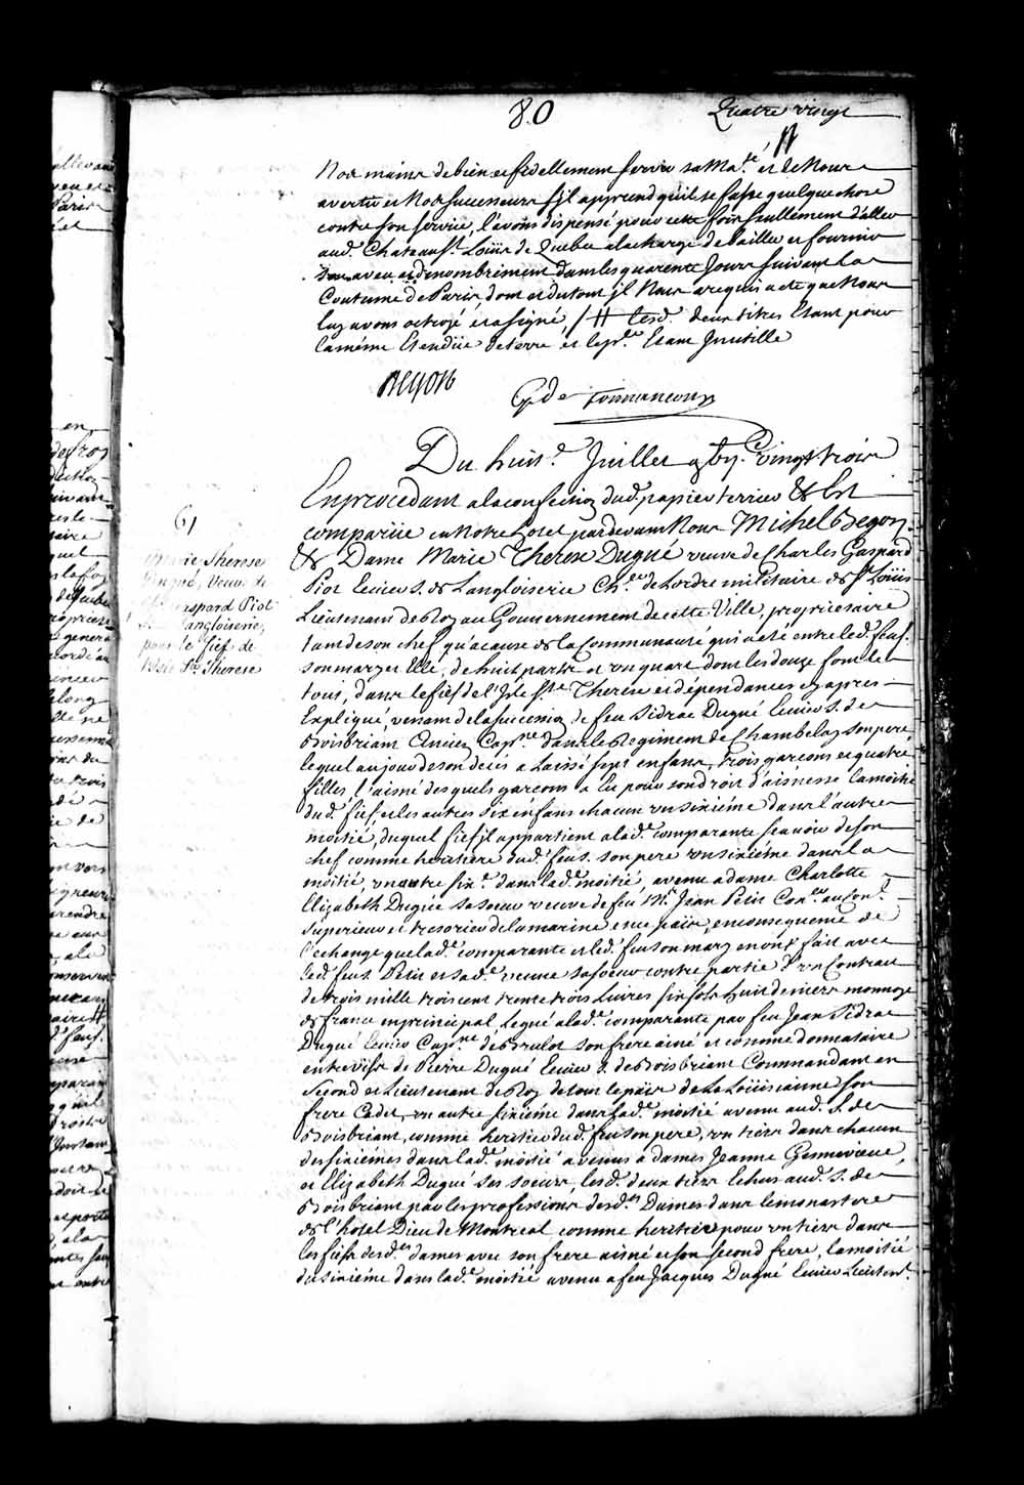 80
Quatre vingt
Nos mains de bien et fidellement servir sa Ma.té et de Nous
avertir et Nos successeurs s'il apprend qu'il se fasse quelque chose
contre son service, l'avons dispensé pour cette fois seullement d'aller
aud. Chateau St Loüis de Quebec a la charge de bailler et fournir
son aveu et denombrement dans les quarente Jours suivant la
Coutume de Paris, dont et du tout il Nous a requis acte que Nous
luy avons octroyé et a signé, /# lesd. deux titres Etant pour
la même Etendüe de terre et le pr. Etant Inutille
Begon
G de Tonnancour
Du huit.e Juillet vingt trois
En procedant a la confection dud. papier terrier & Est
comparüe en Notre hotel pardevant Nous Michel Begon
& Dame Marie Therese Dugué veuve de Charles Gaspard
Piot Ecuier S. de Langloiserie Ch.er de Lordre militaire de St Loüis
Lieutenant de Roy au Gouvernement de cette Ville, proprietaire
tant de son chef qu'acause de la Communauté qui a eté entre led. feu S.
son mary et Elle, de huit parts et un quart dont les douze font le
tout, dans le fief de l'Isle Ste Therese et dépendances cy apres
Expliqué, venant de la succession de feu Sidrac Dugué Ecuier S. de
Boisbriant Ancien Cap.ne dans le Regiment de Chambelay son pere,
lequel au jour de son deces a laissé sept enfans, trois garcons et quatre
filles l'ainé desquels garcons a Eu pour son droit d'aisnesse la moitié
dud. fief, et les autres six enfans chacun un sixiéme dans l'autre
moitié, duquel fief il appartient a lad.e comparante scavoir de son
chef comme heritiere dud. feu S. son pere un sixiéme dans la
moitié, un autre six.e dans lad.e moitié, avenu a dame Charlotte
Elizabeth Dugué sa soeur veuve de feu M.r Jean Petit Con.er au Con.l
superieur et tresorier de la marine en ce païs, en consequence de
l'echange que lad.e comparante et led. feu son mary en ont fait avec
led. feu S. Petit et sad.e veuve sa soeur contre partie d'un Contrat
de trois mille trois cent trente trois Livres six sols huit deniers monnoye
de france en principal Legué a lad.e comparante par feu Jean Sidrac
Dugué Ecuier Cap.ne de Brulot son frere ainé et comme donnataire
entrevifs de Pierre Dugué Ecuier S. de Boisbriant Commandant en
second et Lieutenant de Roy de tout le païs de La Loüisianne son
frere Cadet, un autre sixiéme dans lad.e moitié avenu aud. S. de
Boisbriant, comme heritier dud. feu son pere, un tiers dans chacun
des sixiémes dans lad.e moitié avenus a dames Jeanne Gennevieve,
et Elizabeth Dugué ses soeurs, lesd. deux tiers Echus aud. S. de
Boisbriant par les professions desd.es Dames dans le monastere
de l'hotel Dieu de Montreal comme heritier pour un tiers dans
les fiefs desd.es dames avec son frere ainé et son second frere, la moitié
du sixiéme dans lad.e moitié avenu a feu Jacques Dugué Ecuier Lieuten.t
61
Marie Therese
Dugué, Veuve de
Gaspard Piot
Langloiserie,
pour le fief de
l'Isle Ste Therese